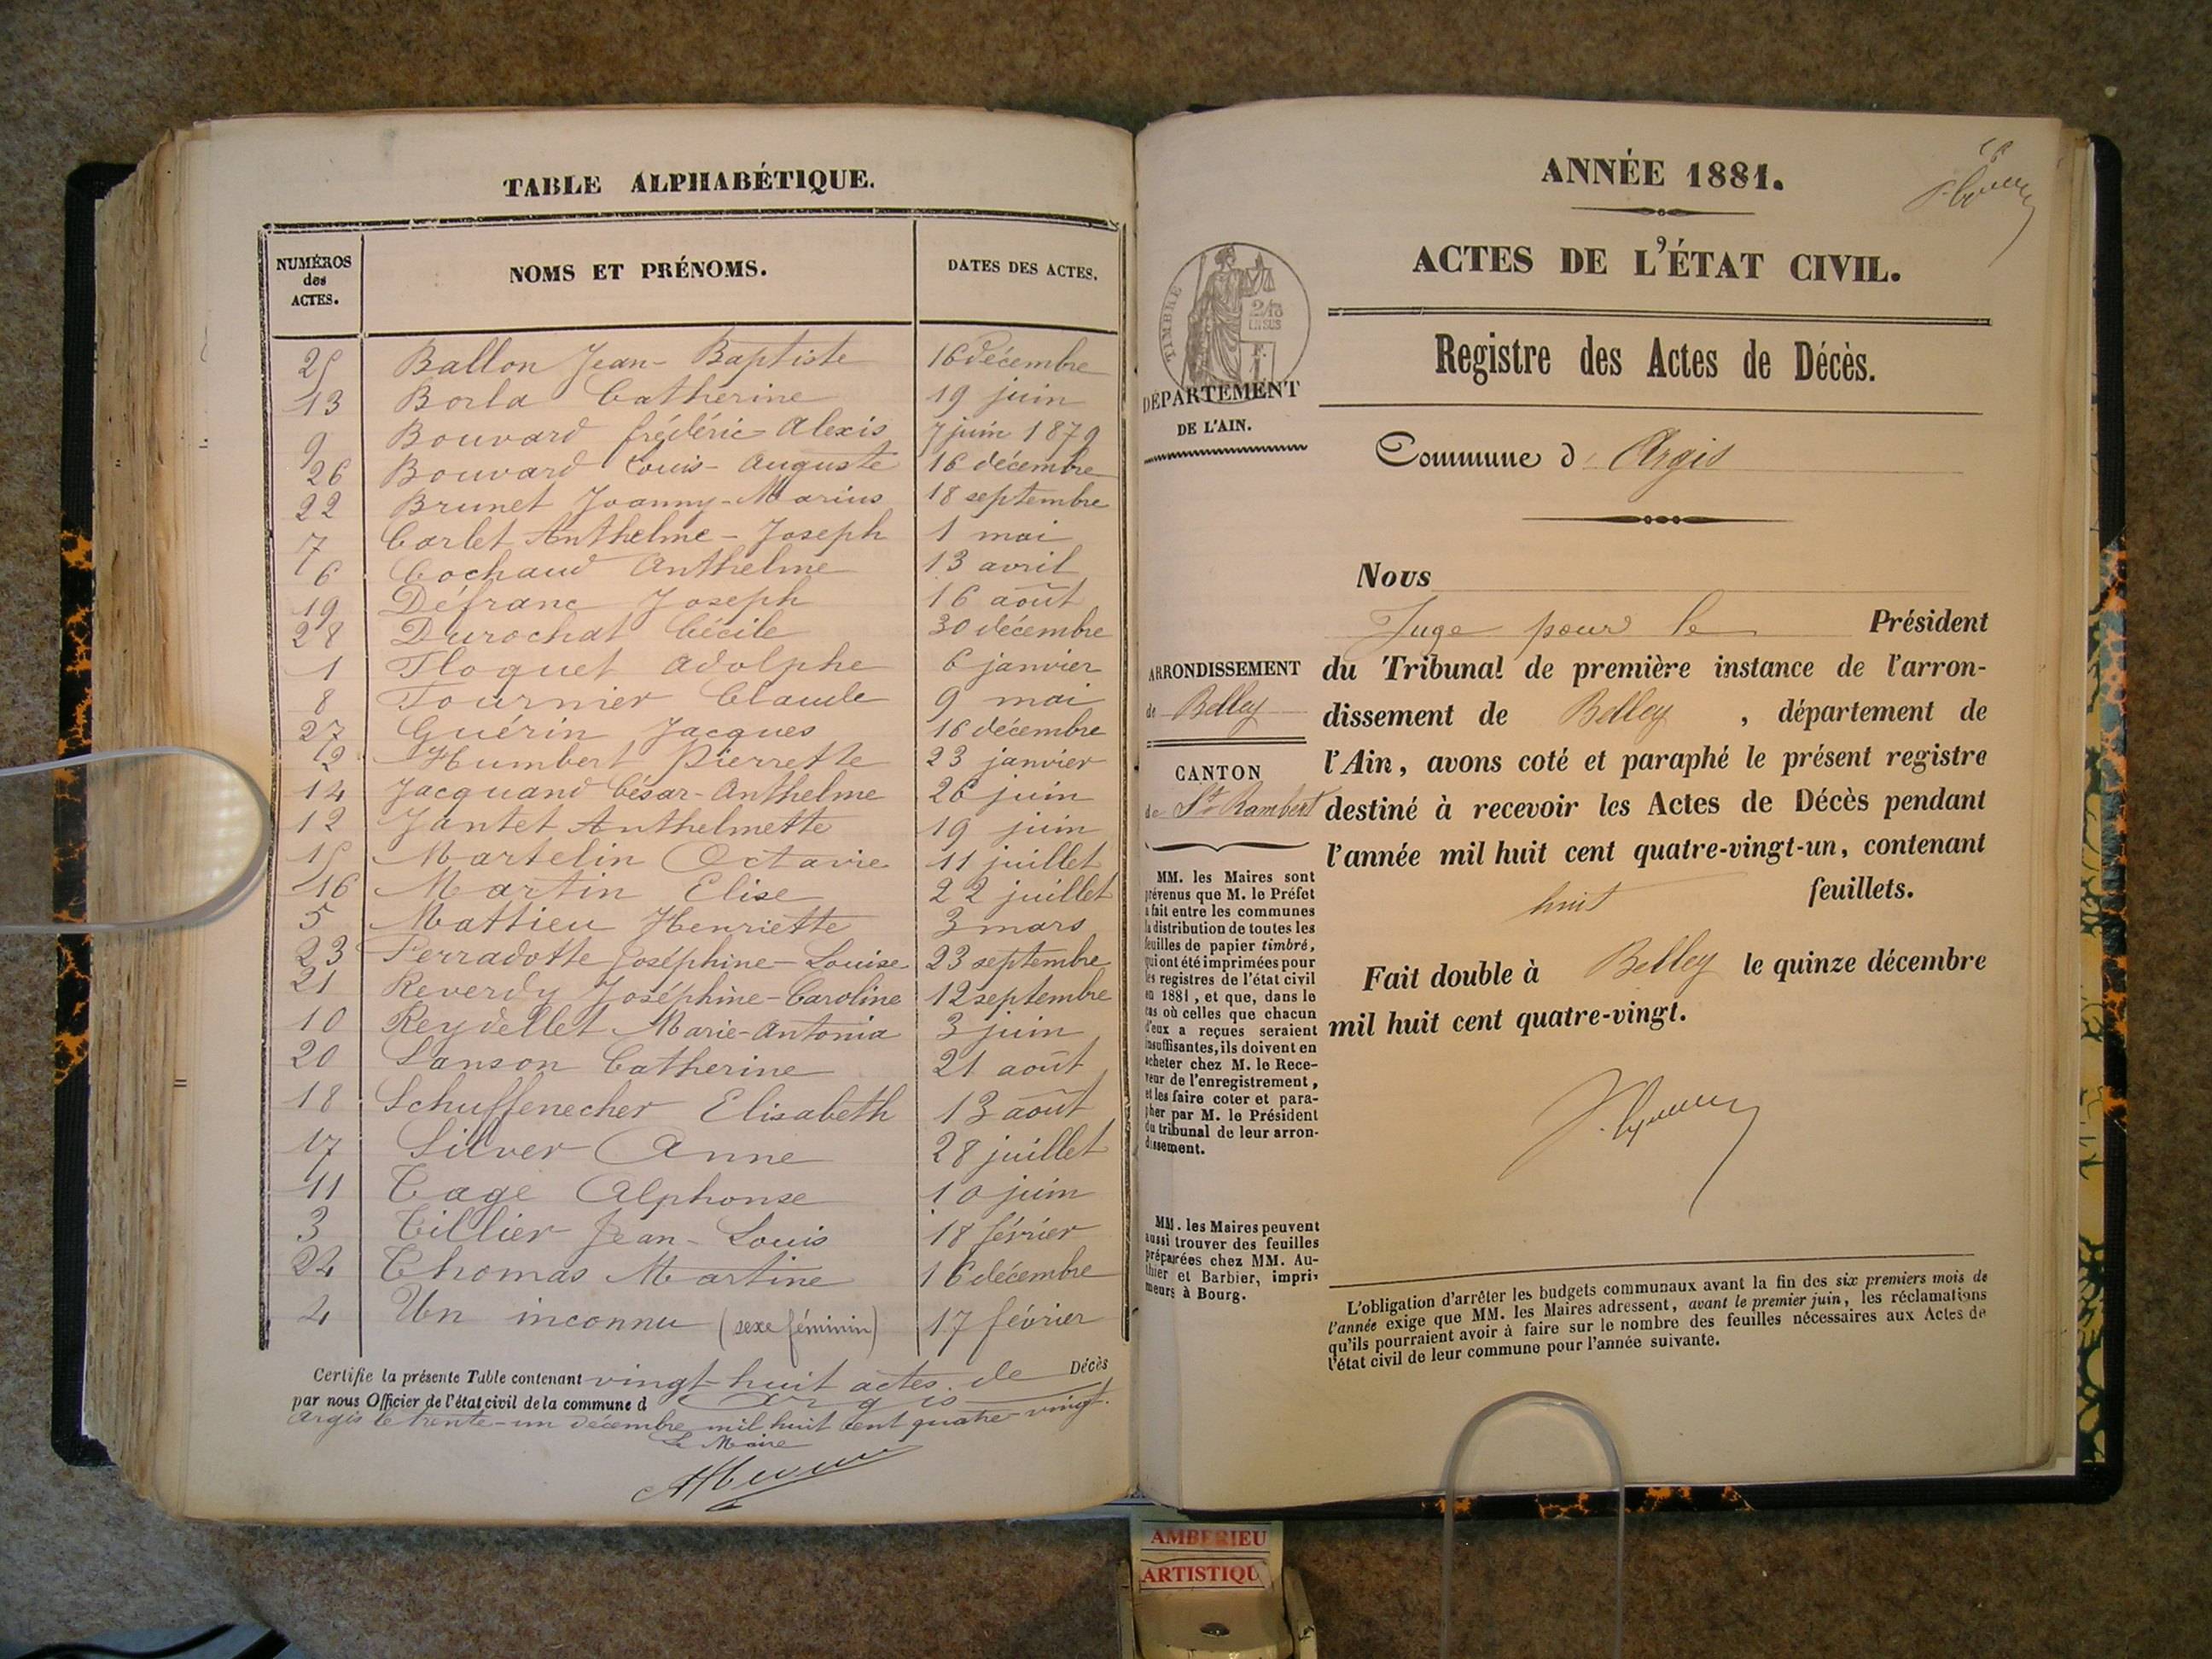 TABLE ALPHABÉTIQUE.
NUMÉROS des ACTES. NOMS ET PRÉNOMS. DATES DES ACTES.
25 Ballon Jean-Baptiste 16 décembre
13 Borla Catherine 19 juin
9 Bouvard frédéric-Alexis 7 juin 1879
26 Bouvard Louis-Auguste 16 décembre
22 Brunet Joanny-Marius 18 septembre
7 Carlet Anthelme-Joseph 1 mai
6 Cochaud Anthelme 13 avril
19 Défranc Joseph 16 août
28 Durochat Cécile 30 décembre
1 Floquet Adolphe 6 janvier
8 Fournier Claude 9 mai
27 Guérin Jacques 16 décembre
2 Humbert Pierrette 23 janvier
14 Jacquand César-Anthelme 26 juin
12 Jantet Anthelmette 19 juin
15 Martelin Octavie 11 juillet
16 Martin Elise 22 juillet
5 Mattieu Henriette 3 mars
23 Perradotte Joséphine-Louise 23 septembre
21 Reverdy Joséphine-Caroline 12 septembre
10 Reydellet Marie-Antonia 3 juin
20 Sanson Catherine 21 août
18 Schuffenecher Elisabeth 13 août
17 Silver Anne 28 juillet
11 Tage Alphonse 10 juin
3 Tillier Jean-Louis 18 février
24 Thomas Martine 16 décembre
4 Un inconnu (sexe féminin) 17 février
Certifie la présente Table contenant vingt-huit actes de Décès
par nous Officier de l'état civil de la commune d Argis
Argis le trente-un décembre mil huit cent quatre-vingt.
Le Maire
ANNÉE 1881.
ACTES DE L'ÉTAT CIVIL.
Registre des Actes de Décès.
TIMBRE
2/10
EN SUS
DÉPARTEMENT
DE L'AIN.
Commune d' Argis
Nous
Juge pour le Président
du Tribunal de première instance de l'arron-
dissement de Belley, département de
l'Ain, avons coté et paraphé le présent registre
destiné à recevoir les Actes de Décès pendant
l'année mil huit cent quatre-vingt-un, contenant
huit feuillets.
Fait double à Belley le quinze décembre
mil huit cent quatre-vingt.
ARRONDISSEMENT
de Belley
CANTON
de St Rambert
MM. les Maires sont
prévenus que M. le Préfet
a fait entre les communes
la distribution de toutes les
feuilles de papier timbré,
qui ont été imprimées pour
les registres de l'état civil
en 1881, et que, dans le
cas où celles que chacun
d'eux a reçues seraient
insuffisantes, ils doivent en
acheter chez M. le Rece-
veur de l'enregistrement,
et les faire coter et para-
pher par M. le Président
du tribunal de leur arron-
dissement.
MM. les Maires peuvent
aussi trouver des feuilles
préparées chez MM. Au-
thier et Barbier, impri-
meurs à Bourg.
L'obligation d'arrêter les budgets communaux avant la fin des six premiers mois de
l'année exige que MM. les Maires adressent, avant le premier juin, les réclamations
qu'ils pourraient avoir à faire sur le nombre des feuilles nécessaires aux Actes de
l'état civil de leur commune pour l'année suivante.
AMBERIEU
ARTISTIQU